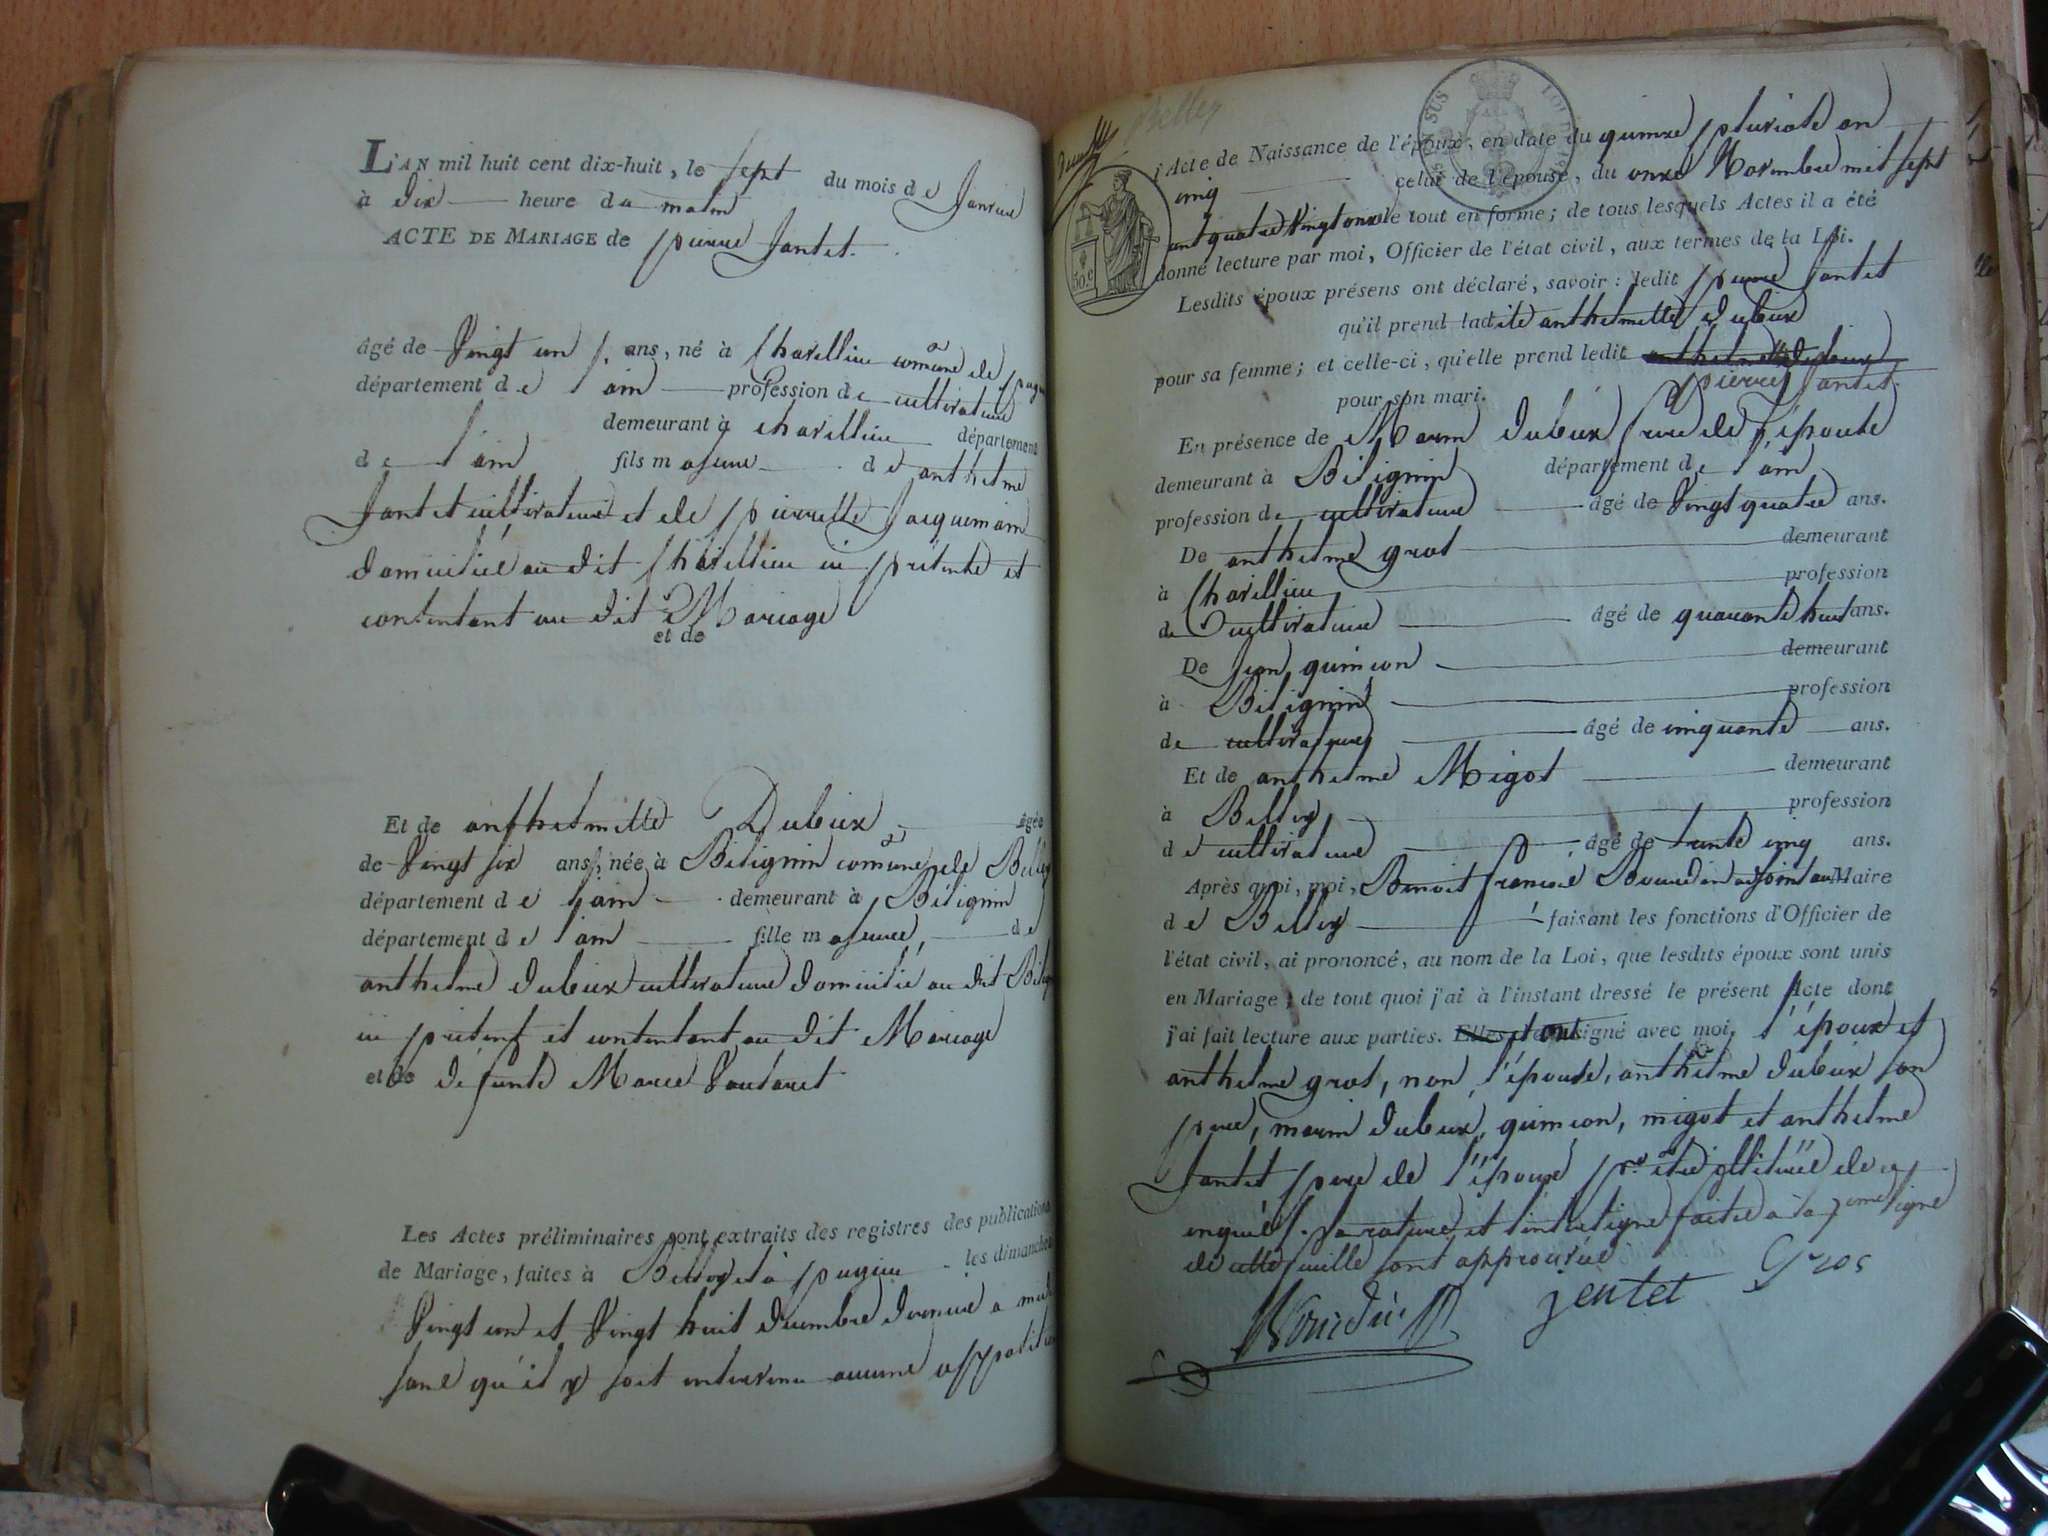 L'AN mil huit cent dix-huit, le sept du mois de Janvier
à dix heure du matin
ACTE DE MARIAGE de pierre Jantet.
âgé de Vingt un ans, né à Chavillieu comune de pugieu
département de l'ain profession de cultivateur
demeurant à Chavillieu département
de l'ain fils majeur de anthelme
Jantet cultivateur et de pierrette Jacquemain
domiciliée au dit Chavillieu ici présents et
consentant au dit Mariage
et de
Et de anthelmette Dubeux âgée
de Vingt six ans, née à Bilignin comune de Belley
département de l'ain demeurant à Bilignin
département de l'ain fille majeure, de
anthelme dubeux cultivateur domicilié au dit Bilignin
ici présent et consentant au dit Mariage
et de défunte Marie
Les Actes préliminaires sont extraits des registres des publications
de Mariage, faites à Belley et à pugieu les dimanches
Vingt un et Vingt huit décembre dernier a midi
sans qu'il y soit intervenu aucune opposition
Belley
l'Acte de Naissance de l'époux, en date du quinze pluviose an
cinq celui de l'épouse, du onze Novembre mil sept
cent quatre Vingt onze le tout en forme; de tous lesquels Actes il a été
50.c
donné lecture par moi, Officier de l'état civil, aux termes de la Loi.
Lesdits époux présens ont déclaré, savoir: ledit pierre Jantet
qu'il prend ladite anthelmette dubeux
pour sa femme; et celle-ci, qu'elle prend ledit anthelmette dubeux
pierre Jantet.
pour son mari.
En présence de Marin dubeux frere de l'épouse
demeurant à Bilignin département de l'ain
profession de cultivateur âgé de Vingt quatre ans.
De anthelme gros demeurant
à Chavillieu profession
de cultivateur âgé de quarante huit ans.
De jean quincon demeurant
à Bilignin profession
de cultivateur âgé de cinquante ans.
Et de anthelme Migot demeurant
à Belley profession
de cultivateur âgé de trente cinq ans.
Après quoi, moi, Benoit françois adjoint au Maire
de Belley faisant les fonctions d'Officier de
l'état civil, ai prononcé, au nom de la Loi, que lesdits époux sont unis
en Mariage; de tout quoi j'ai à l'instant dressé le présent Acte dont
j'ai fait lecture aux parties. Elles et ont signé avec moi, l'époux et
anthelme gros, non l'épouse, anthelme dubeux son
pere, marin dubeux, quincon, migot et anthelme
Jantet pere de l'époux pr. être illitérés de ce
enquis. la rature et l'interligne faite à la 7eme ligne
de cette feuille sont approuvée
jentet Gros